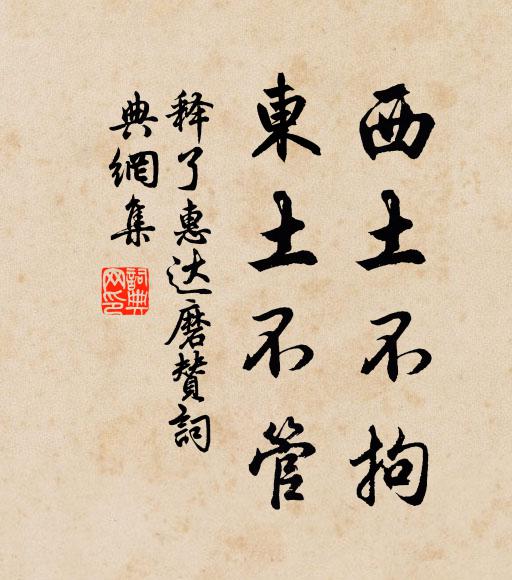 西土不拘
東土不管
释了惠达磨赞詞
典網集
詞典
网印